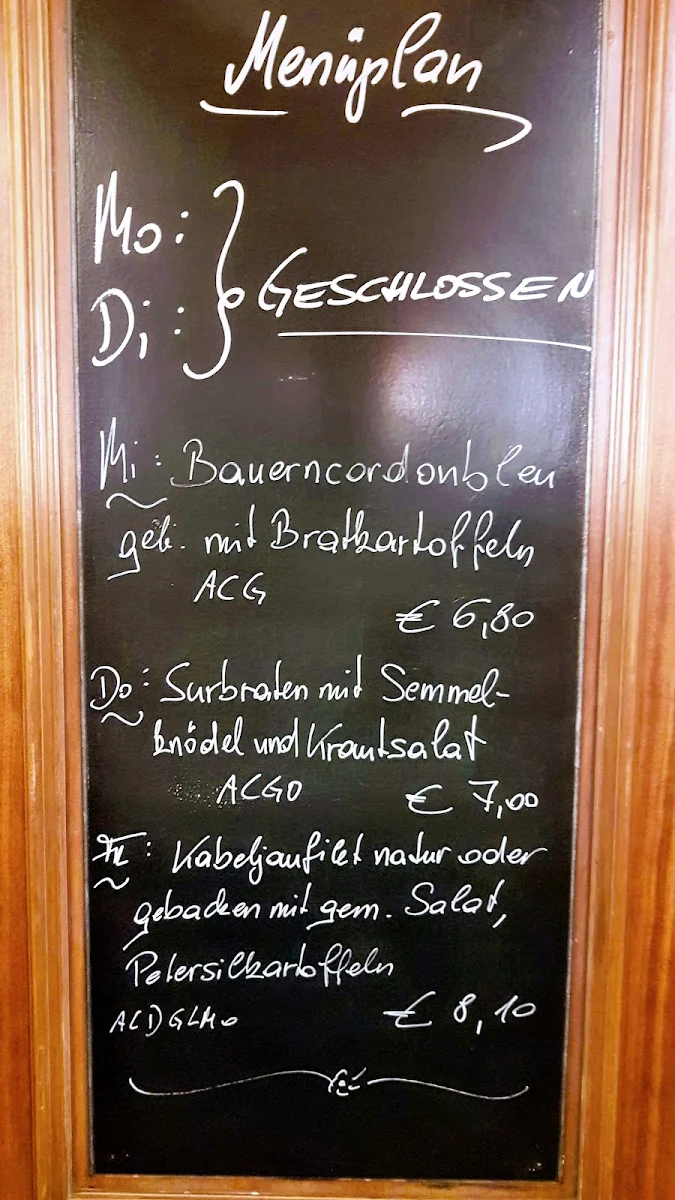 Menüplan
Mo:
GESCHLOSSEN
Di:
Mi: Bauerncordonbleu
geb. mit Bratkartoffeln
ACG
€ 6,80
Do: Surbraten mit Semmel-
knödel und Krautsalat
ACGO
€ 7,00
Fr: Kabeljaufilet natur oder
gebacken mit gem. Salat,
Petersilkartoffeln
ACDGLMO
€ 8,10